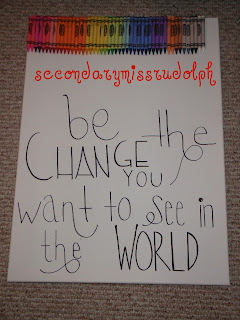 secondarymissrudolph
be the
CHANGE
YOU
want to see in
the WORLD